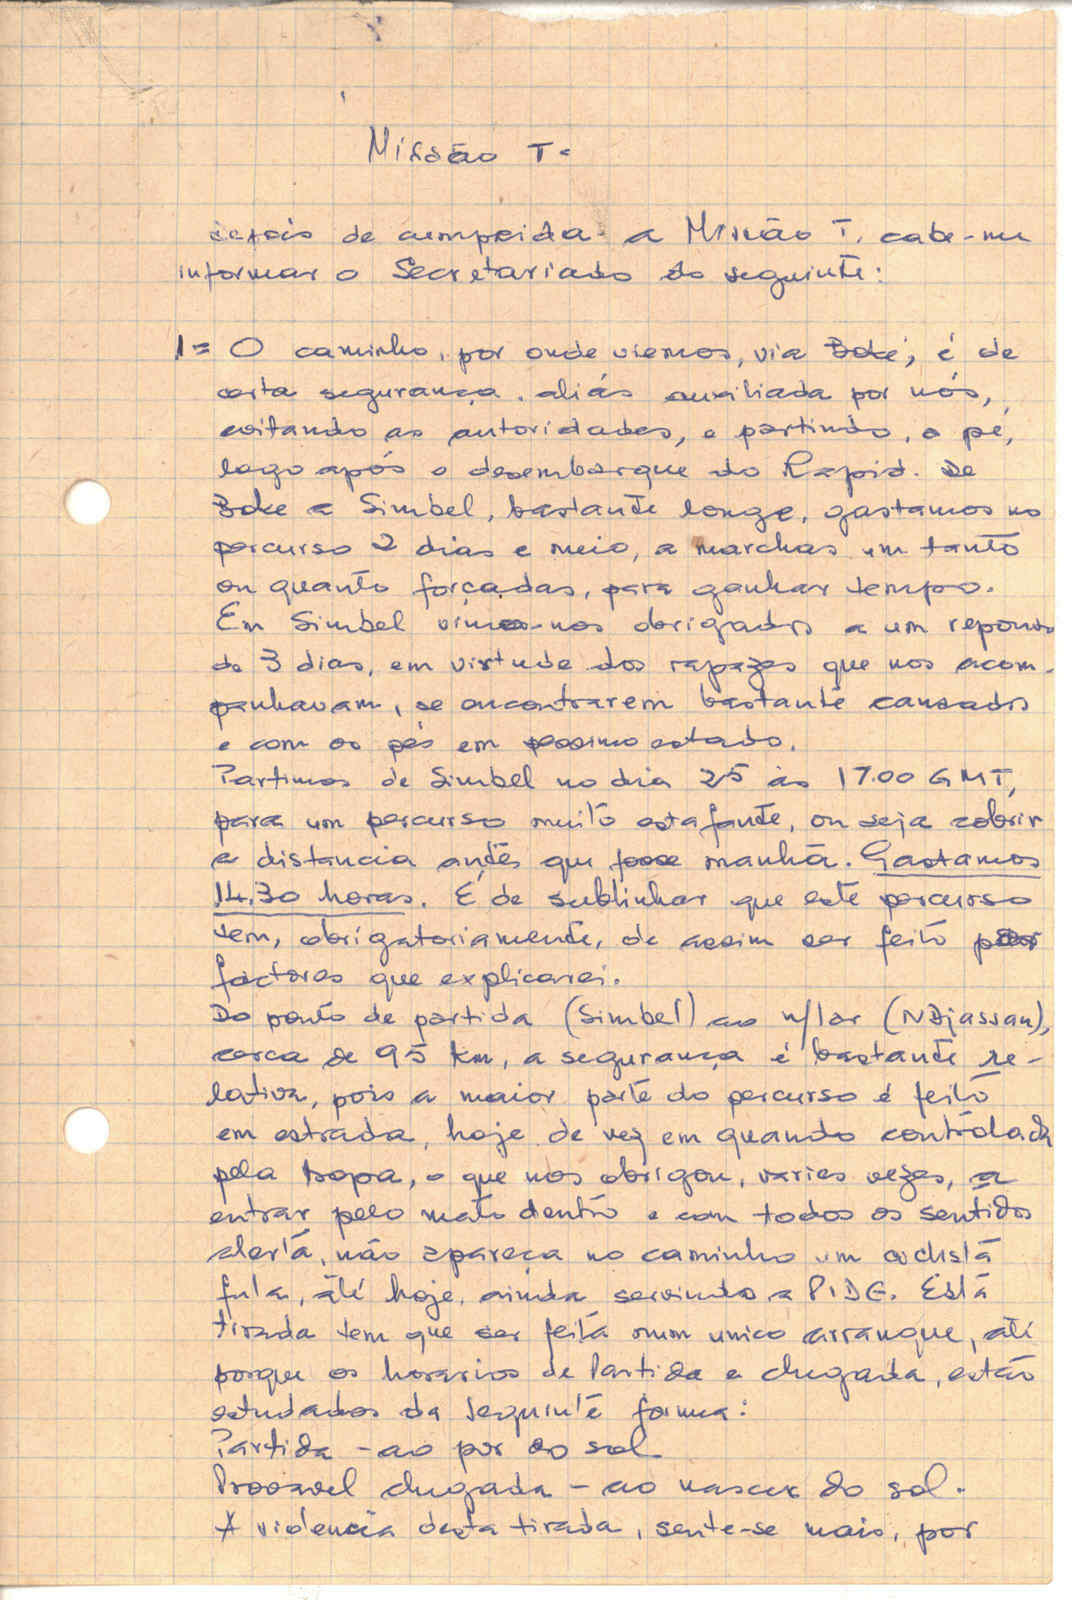 Missão T.
depois de cumprida a Missão T. cabe-me
informar o Secretariado do seguinte:
1= O caminho, por onde viemos, via Boké, é de
certa segurança, aliás auxiliada por nós,
evitando as autoridades, e partindo, a pé,
logo após o desembarque do Rapid. De
Boke a Simbel, bastante longe, gastamos no
percurso 2 dias e meio, a marchas um tanto
ou quanto forçadas, para ganhar tempo.
Em Simbel vimo-nos obrigados a um repouso
de 3 dias, em virtude dos rapazes que nos acom-
panhavam, se encontrarem bastante cansados
e com os pés em pessimo estado.
Partimos de Simbel no dia 25 às 17.00 GMT,
para um percurso muito estafante, ou seja cobrir
a distancia antes que fosse manhã. Gastamos
14.30 horas. É de sublinhar que este percurso
tem, obrigatoriamente, de assim ser feito por
factores que explicarei.
Do ponto de partida (Simbel) ao n/lar (NDjassan),
cerca de 95 km, a segurança é bastante re-
lativa, pois a maior parte do percurso é feito
em estrada, hoje de vez em quando contrólada
pela tropa, o que nos obrigou, varias vezes, a
entrar pelo mato dentro e com todos os sentidos
alertá, não apareça no caminho um ciclista
fula, até hoje, ainda servindo a PIDE. Está
tirada tem que ser feita num unico arranque, até
porque os horarios de Partida e chegada, estão
estudados da seguinte forma:
Partida - ao por do sol.
Provavel chegada - ao nascer do sol.
A violencia desta tirada, sente-se mais, por